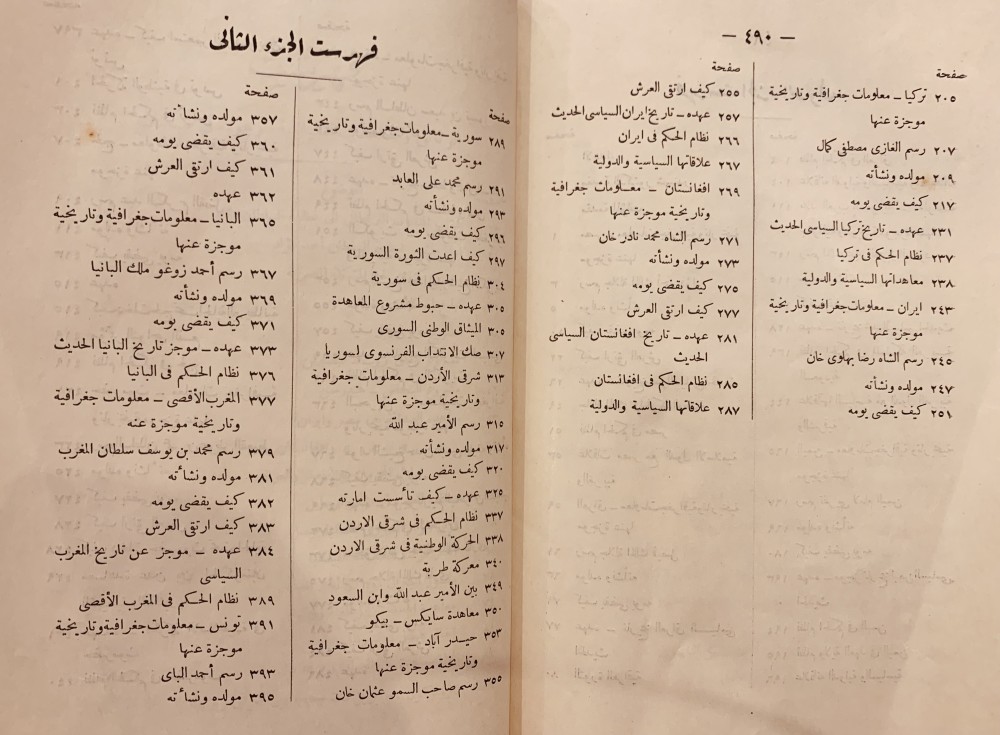 — ٤٩٠ —
صفحة
٢٠٥ تركيا — معلومات جغرافية وتاريخية
موجزة عنها
٢٠٧ رسم الغازى مصطفى كمال
٢٠٩ مولده ونشأته
٢١٧ كيف يقضى يومه
٢٣١ عهده — تاريخ تركيا السياسى الحديث
٢٣٧ نظام الحكم فى تركيا
٢٣٨ معاهداتها السياسية والدولية
٢٤٣ ايران — معلومات جغرافية وتاريخية
موجزة عنها
٢٤٥ رسم الشاه رضا بهلوى خان
٢٤٧ مولده ونشأته
٢٥١ كيف يقضى يومه
صفحة
٢٥٥ كيف ارتقى العرش
٢٥٧ عهده — تاريخ ايران السياسى الحديث
٢٦٦ نظام الحكم فى ايران
٢٦٧ علاقاتها السياسية والدولية
٢٦٩ افغانستان — معلومات جغرافية
وتاريخية موجزة عنها
٢٧١ رسم الشاه محمد نادر خان
٢٧٣ مولده ونشأته
٢٧٥ كيف يقضى يومه
٢٧٧ كيف ارتقى العرش
٢٨١ عهده — تاريخ افغانستان السياسى
الحديث
٢٨٥ نظام الحكم فى افغانستان
٢٨٧ علاقاتها السياسية والدولية
فهرست الجزء الثانى
صفحة
٢٨٩ سورية — معلومات جغرافية وتاريخية
موجزة عنها
٢٩١ رسم محمد على العابد
٢٩٣ مولده ونشأته
٢٩٦ كيف يقضى يومه
٢٩٧ كيف اعدت الثورة السورية
٣٠٤ نظام الحكم فى سورية
٣٠٥ عهده — حبوط مشروع المعاهدة
٣٠٥ الميثاق الوطنى السورى
٣٠٧ صك الانتداب الفرنسوى لسوريا
٣١٣ شرقى الأردن — معلومات جغرافية
وتاريخية موجزة عنها
٣١٥ رسم الأمير عبد الله
٣١٧ مولده ونشأته
٣٢٠ كيف يقضى يومه
٣٢٥ عهده — كيف تأسست امارته
٣٣٧ نظام الحكم فى شرقى الاردن
٣٣٨ الحركة الوطنية فى شرقى الاردن
٣٤٠ معركة طربة
٣٤٩ بين الأمير عبد الله وابن السعود
٣٥٠ معاهدة سايكس — بيكو
٣٥٣ حيدر آباد — معلومات جغرافية
وتاريخية موجزة عنها
٣٥٥ رسم صاحب السمو عثمان خان
صفحة
٣٥٧ مولده ونشأته
٣٦٠ كيف يقضى يومه
٣٦١ كيف ارتقى العرش
٣٦٢ عهده
٣٦٥ البانيا — معلومات جغرافية وتاريخية
موجزة عنها
٣٦٧ رسم أحمد زوغو ملك البانيا
٣٦٩ مولده ونشأته
٣٧١ كيف يقضى يومه
٣٧٣ عهده — موجز تاريخ البانيا الحديث
٣٧٦ نظام الحكم فى البانيا
٣٧٧ المغرب الأقصى — معلومات جغرافية
وتاريخية موجزة عنه
٣٧٩ رسم محمد بن يوسف سلطان المغرب
٣٨١ مولده ونشأته
٣٨٢ كيف يقضى يومه
٣٨٣ كيف ارتقى العرش
٣٨٤ عهده — موجز عن تاريخ المغرب
السياسى
٣٨٩ نظام الحكم فى المغرب الأقصى
٣٩١ تونس — معلومات جغرافية وتاريخية
موجزة عنها
٣٩٣ رسم أحمد الباى
٣٩٥ مولده ونشأته